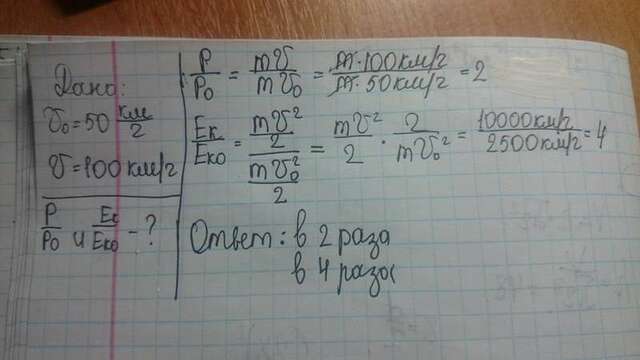 Дано:
υ₀ = 50 км/г
υ = 100 км/г
P/P₀ и Eк/Eк₀ - ?
P/P₀ = mυ/mυ₀ = m·100км/г / m·50км/г = 2
Eк/Eк₀ = (mυ²/2)/(mυ₀²/2) = mυ²/2 · 2/mυ₀² = 10000км/г / 2500км/г = 4
Ответ: в 2 раза
в 4 раза